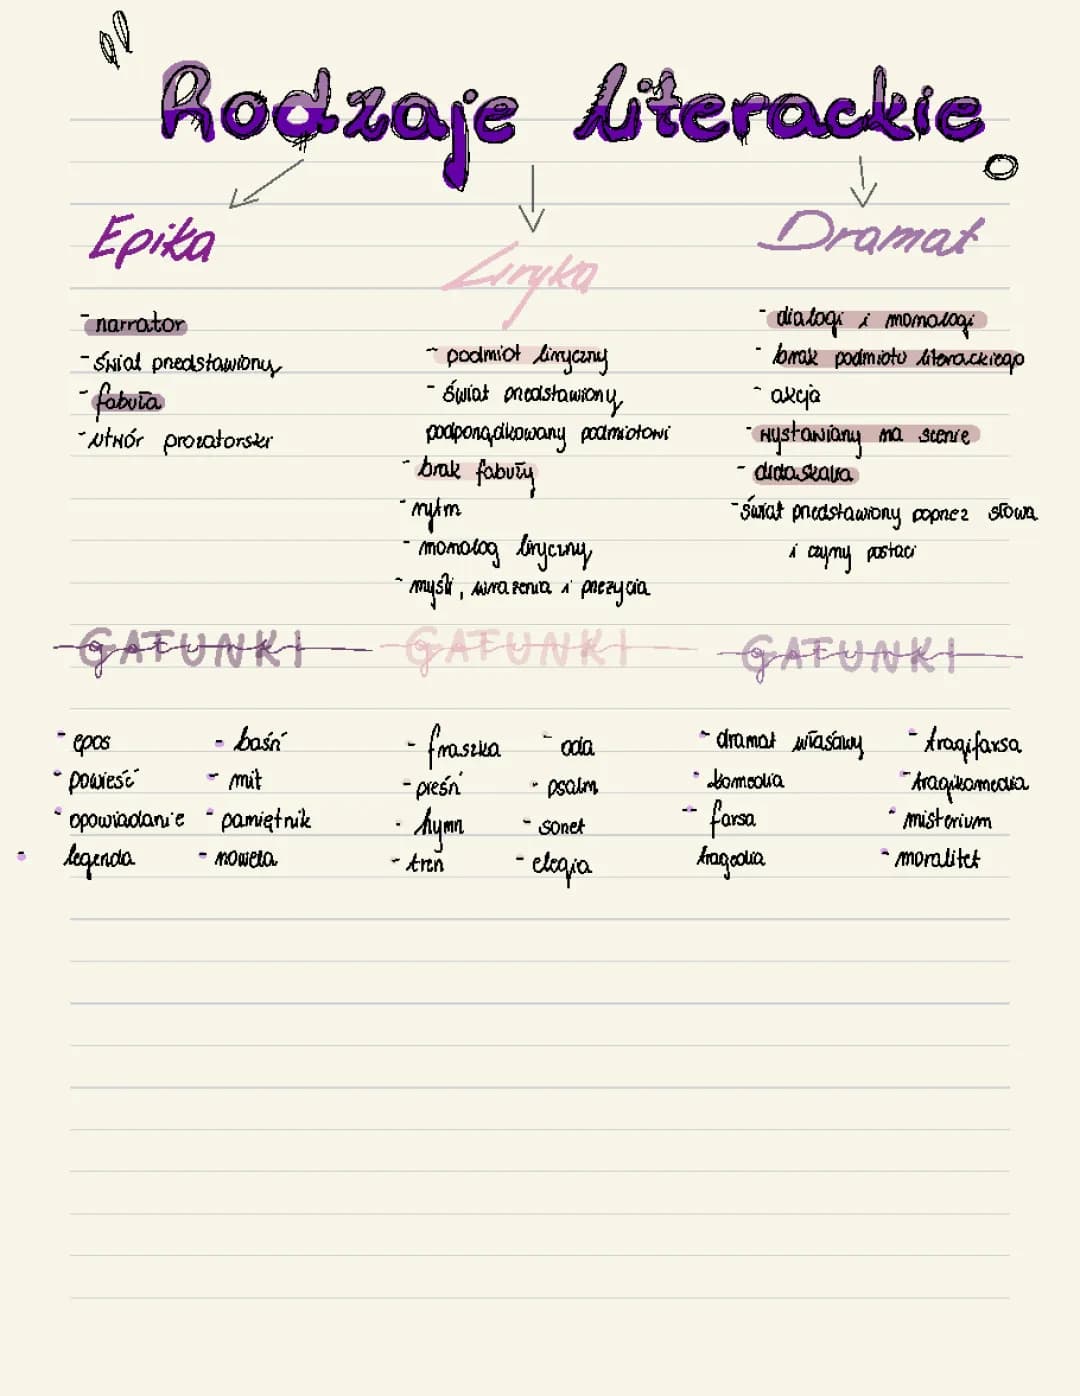 Rodzaje literackie
Epika
- narrator
- świat przedstawiony
- fabuła
- utwór prozatorski
Liryka
- podmiot liryczny
- świat przedstawiony
podporządkowany podmiotowi
- brak fabuły
- rytm
- monolog liryczny
- myśli, wrażenia i przeżycia
Dramat
- dialogi i monologi
- brak podmiotu literackiego
- akcja
- wystawiany na scenie
- didaskalia
- świat przedstawiony poprzez słowa
i czyny postaci
GATUNKI
- epos
- powieść
- opowiadanie
- legenda
- baśń
- mit
- pamiętnik
- nowela
GATUNKI
- fraszka
- pieśń
- hymn
- tren
- oda
- psalm
- sonet
- elegia
GATUNKI
- dramat właśawy
- komedia
- farsa
tragedia
- tragifarsa
- tragikomedia
- misterium
- moralitet